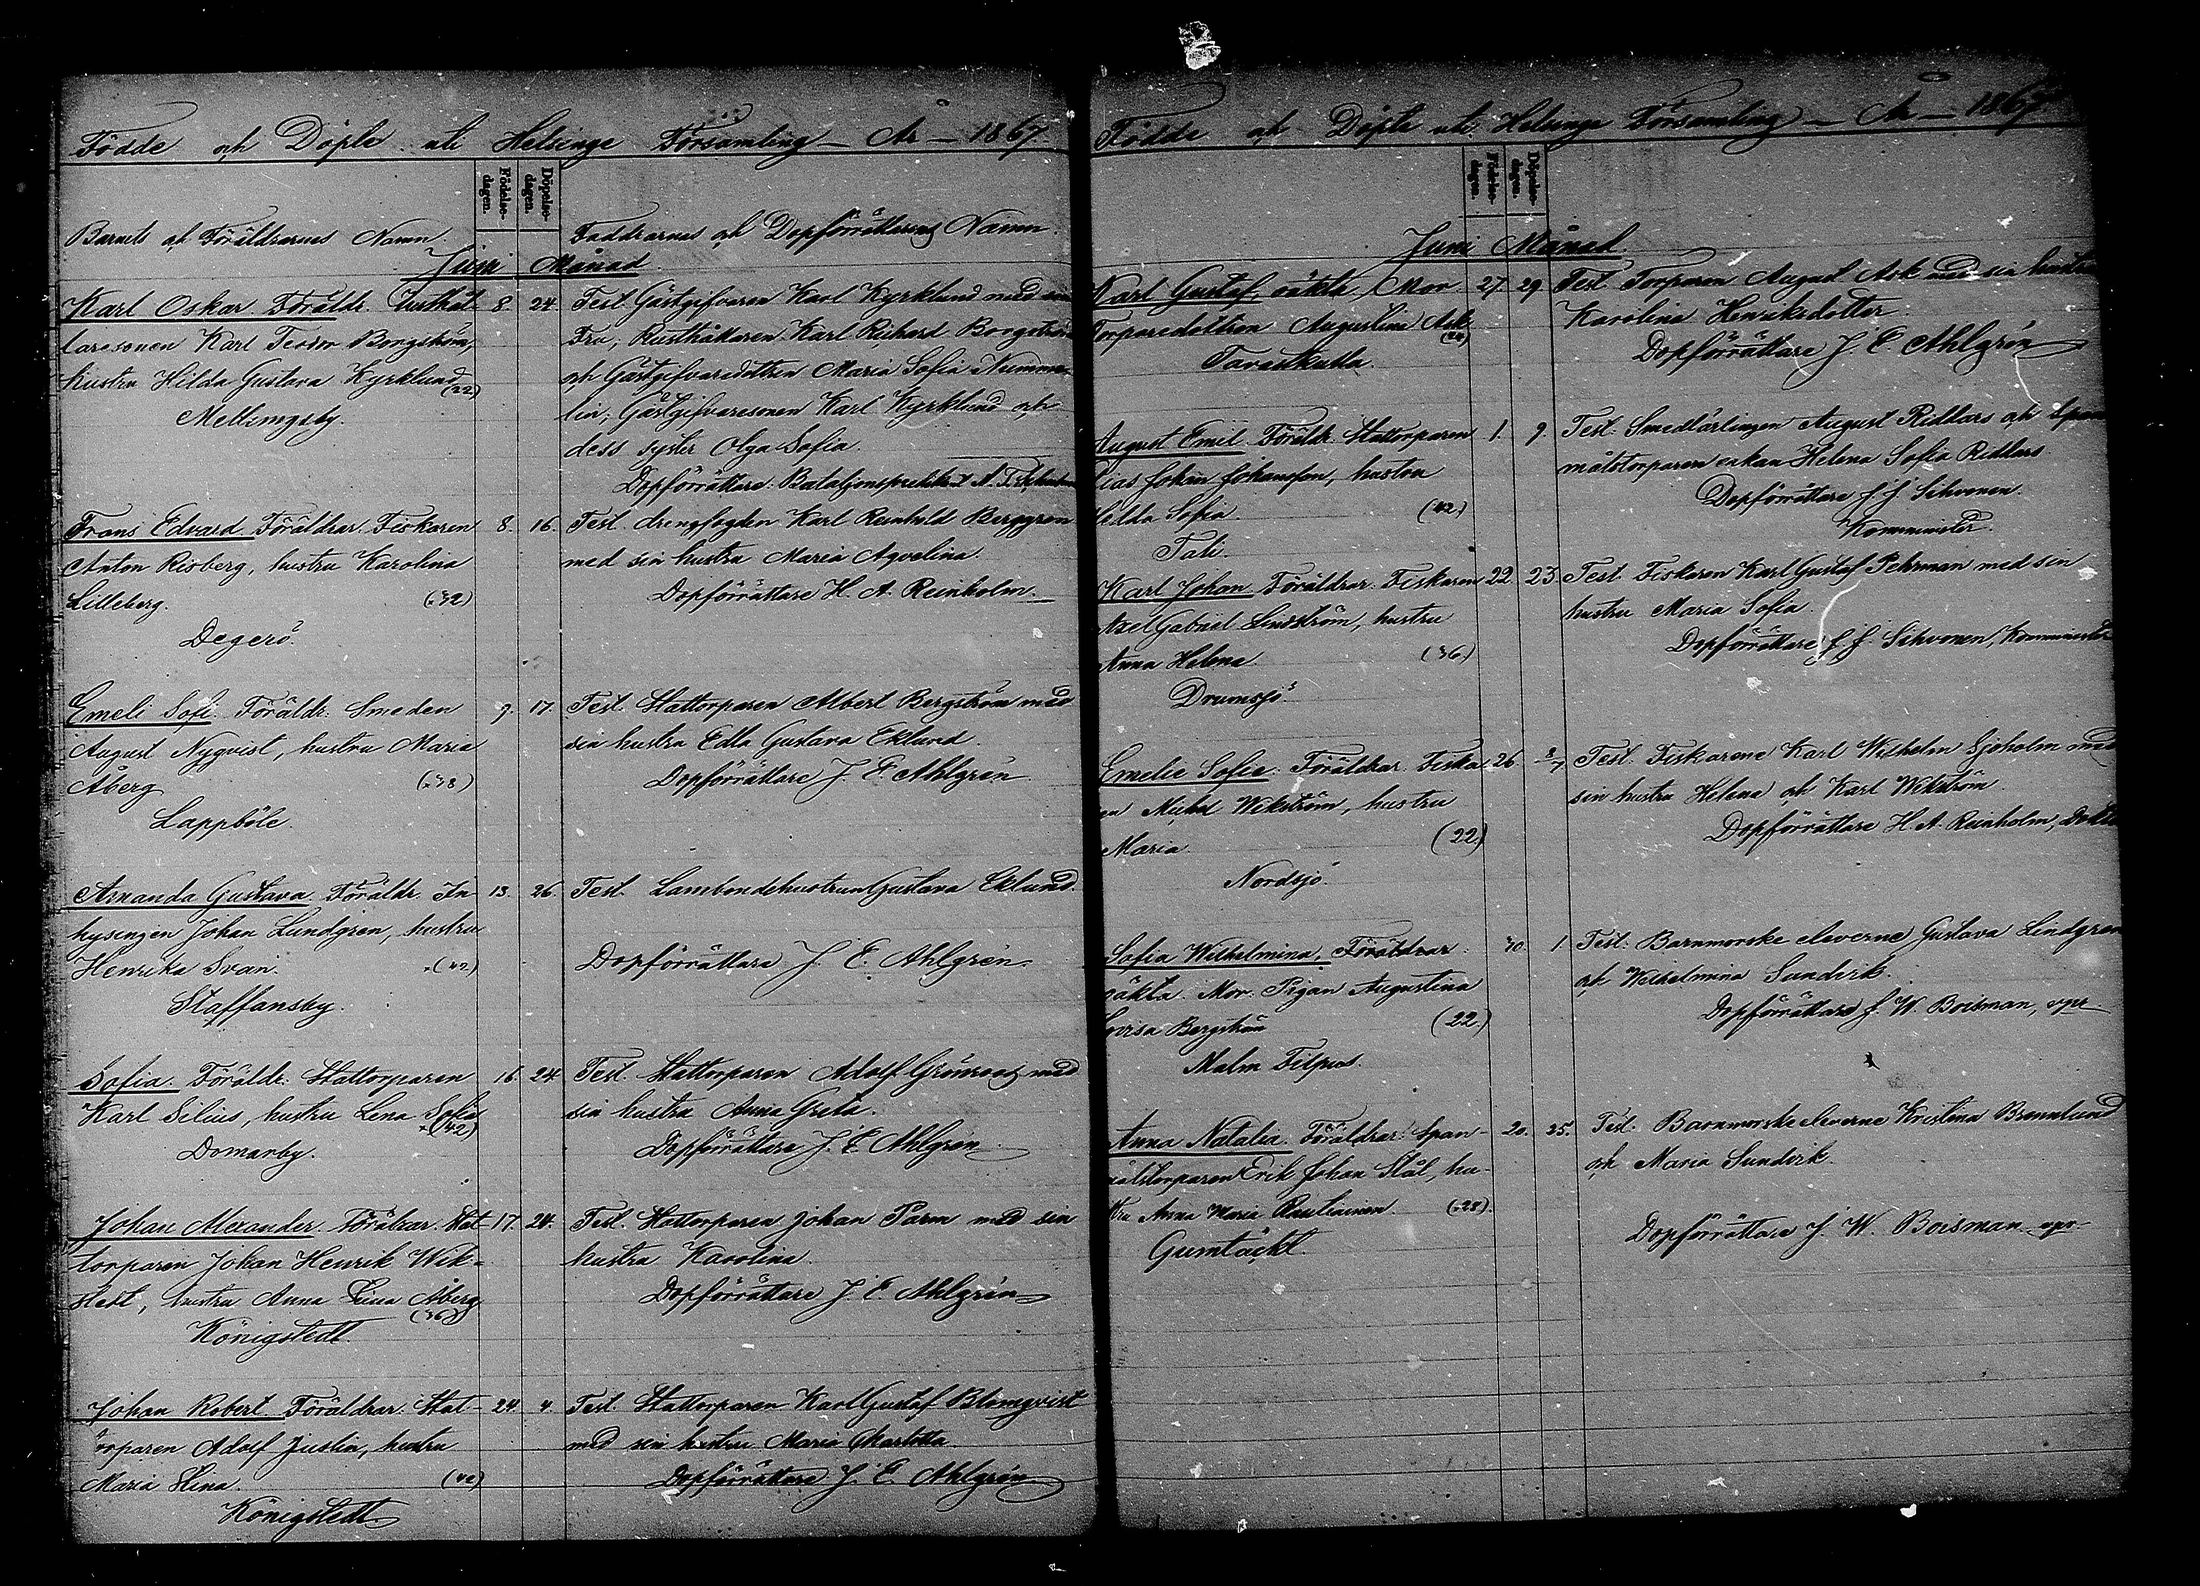 Födde och Döpte uti Helsinge Församling — År — 1867.
Födelse-dagen.
Döpelse-dagen.
Barnets och Föräldrarnes Namn.
Faddrarnes och Dopförrättarens Namn.
Juni Månad.
Karl Oskar. Föräldr. Rusthål- 8. 24. Test. Gästgifvaren Karl Kyrklund med sin
laresonen Karl Teodor Borgström, Fru, Rusthållaren Karl Richard Borgström
hustru Hilda Gustava Kyrklund och Gästgifvaredottren Maria Sofia Numme-
(22)
Mellungsby. lin; Gästgifvaresonen Karl Kyrklund och
dess syster Olga Sofia.
Dopförrättare: Bataljonspredikt N. T.
Frans Edvard. Föräldrar. Fiskaren 8. 16. Test. drengfogden Karl Reinhold Berggren
Anton Risberg, hustru Karolina med sin hustru Maria Aqvelina.
Lilleberg. (32) Dopförrättare H. A. Reinholm.
Degerö.
Emeli Sofi. Föräldr. Smeden 9. 17. Test. Stattorparen Albert Bergström med
August Nyqvist, hustru Maria sin hustru Edla Gustava Eklund.
Åberg (38) Dopförrättare J. E. Ahlgrén
Lappböle.
Amanda Gustava. Föräldr. In- 13. 26. Test. Lambondehustrun Gustava Eklund.
hysingen Johan Lundgren, hustru
Henrika Svan. (42) Dopförrättare J. E. Ahlgrén.
Staffansby.
Sofia. Föräldr. Stattorparen 16. 24. Test. Stattorparen Adolf Grönroos med
Karl Silius, hustru Lena Sofia sin hustru Anna Greta.
(42)
Domarby. Dopförrättare J. E. Ahlgrén
Johan Alexander. Föräldrar. Stat- 17. 24. Test. Stattorparen Johan Parm med sin
torparen Johan Henrik Wik- hustru Karolina.
stedt, hustru Anna Lina Åberg Dopförrättare J. E. Ahlgrén
(36)
Königstedt.
Johan Robert. Föräldrar. Stat- 24. 4. Test. Stattorparen Karl Gustaf Blomqvist
torparen Adolf Justin, hustru med sin hustru Maria Charlotta.
Maria Stina. (42) Dopförrättare J. E. Ahlgrén
Königstedt.
Födde och Döpte uti Helsinge Församling — År — 1867
Födelse-dagen.
Döpelse-dagen.
Juni Månad.
Karl Gustaf, oäkta. Mor 27. 29. Test. Torparen August Ask med sin hustru
Torparedottren Augustina Ask Karolina Henriksdotter.
Tavastkulla. Dopförrättare J. E. Ahlgrén
August Emil. Föräldr. Stattorparen 1. 9. Test. Smedlärlingen August Ridlars och Span
Johan Johansson, hustru målstorpare enkan Helena Sofia Ridlars.
Hilda Sofia. (42) Dopförrättare J. J. Sihvonen.
Tali. Komminister.
Karl Johan. Föräldrar. Fiskaren 22. 23. Test. Fiskaren Karl Gustaf Pehrman med sin
Axel Gabriel Lindström, hustru hustru Maria Sofia.
Anna Helena. (36.) Dopförrättare J. J. Sihvonen, Komminister
Drumsjö.
Emelie Sofie. Föräldrar. Fiska 26 2/7 Test. Fiskarene Karl Wilhelm Sjöholm med
en Michel Wikström, hustru sin hustru Helena och Karl Wikström.
Maria. (22.) Dopförrättare H. A. Reinholm, Dokto
Nordsjö.
Sofia Wilhelmina. Föräldrar. 30. 1. Test. Barnmorske eleverne Gustava Lindgren
oäkta. Mor. Pigan Augustina och Wilhelmina Sundvik.
Lovisa Bergström (22.) Dopförrättare J. W. Boisman, vpr
Malm Filpus.
Anna Natalia. Föräldrar. Span- 20. 25. Test. Barnmorske eleverne Kristina Brannlund
målstorparen Erik Johan Stål, hu- och Maria Sundvik.
stru Anna Maria Rautiainen (28).
Gumtäckt. Dopförrättare J. W. Boisman vpr